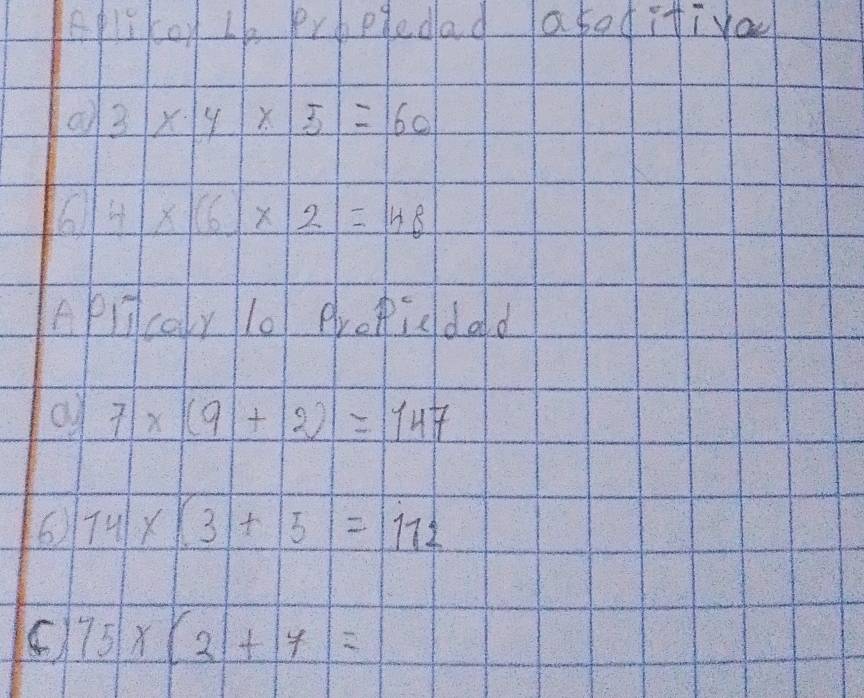 Aplicar la Propiedad asocitiva
a) 3 x 4 x 5 = 60
b) 4 x (6) x 2 = 48
Aplicar la Propiedad
a) 7 x (9 + 2) = 147
b) 14 x (3 + 5 = 112
c) 15 x (2 + 7 =